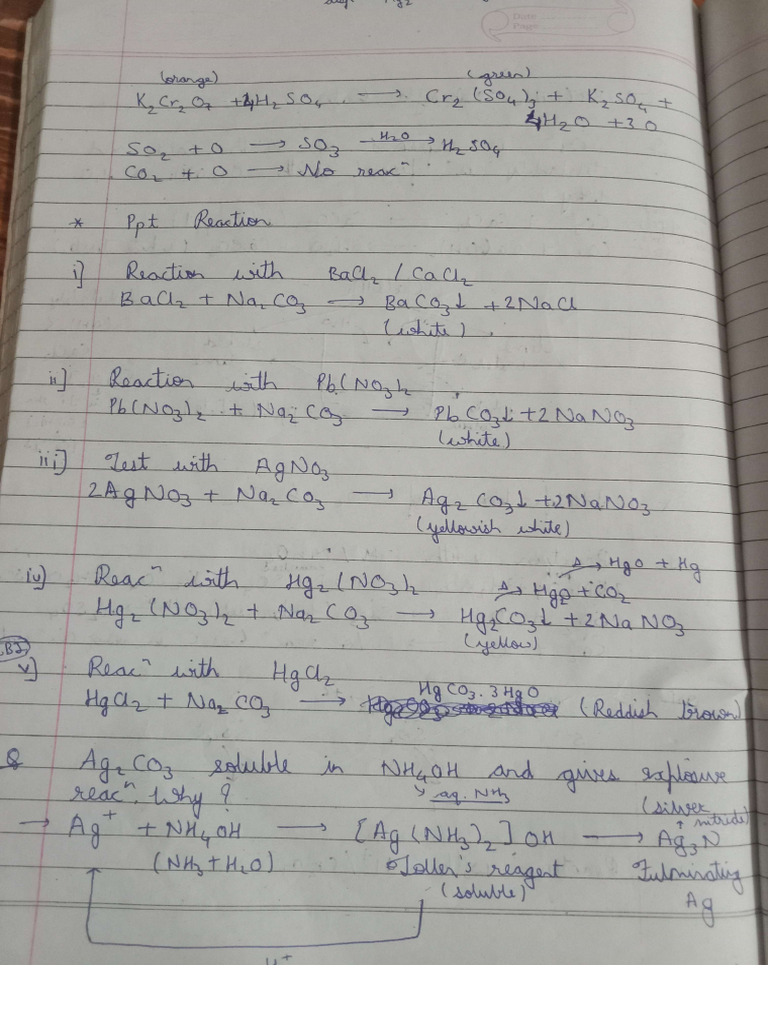 Date
Page
(orange) (green)
K₂Cr₂O₇ + 4H₂SO₄ ⟶ Cr₂(SO₄)₃ + K₂SO₄ +
4H₂O + 3O
SO₂ + O ⟶ SO₃ —H₂O→ H₂SO₄
CO₂ + O ⟶ No reacⁿ
* Ppt Reaction
i] Reaction with BaCl₂ / CaCl₂
BaCl₂ + Na₂CO₃ ⟶ BaCO₃↓ + 2NaCl
(white)
ii] Reaction with Pb(NO₃)₂
Pb(NO₃)₂ + Na₂CO₃ ⟶ PbCO₃↓ + 2NaNO₃
(white)
iii] Test with AgNO₃
2AgNO₃ + Na₂CO₃ ⟶ Ag₂CO₃↓ + 2NaNO₃
(yellowish white)
Δ→ HgO + Hg
iv] Reacⁿ with Hg₂(NO₃)₂ Δ→ Hg₂O + CO₂
Hg₂(NO₃)₂ + Na₂CO₃ ⟶ Hg₂CO₃↓ + 2NaNO₃
(yellow)
v] Reacⁿ with HgCl₂
HgCO₃.3HgO
HgCl₂ + Na₂CO₃ ⟶ (Reddish brown)
Q Ag₂CO₃ soluble in NH₄OH and gives explosive
reacⁿ. Why? → aq. NH₃
(silver nitride)
→ Ag⁺ + NH₄OH ⟶ [Ag(NH₃)₂]OH ⟶ Ag₃N
(NH₃ + H₂O) Tollen's reagent Fulminating
(soluble) Ag
H⁺